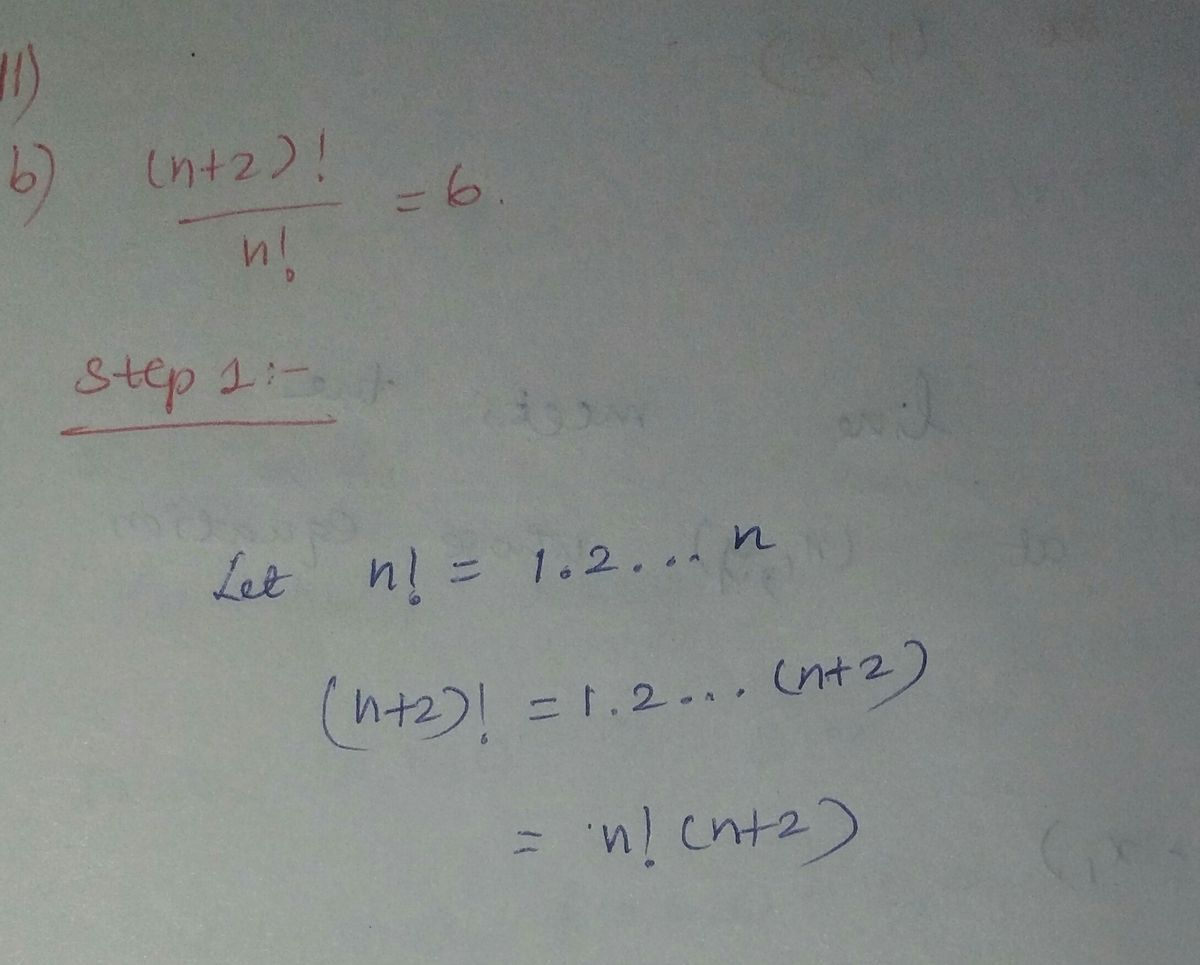 11)
b) (n+2)!
n! = 6.
Step 1:-
Let n! = 1.2... n
(n+2)! = 1.2... (n+2)
= n! (n+2)